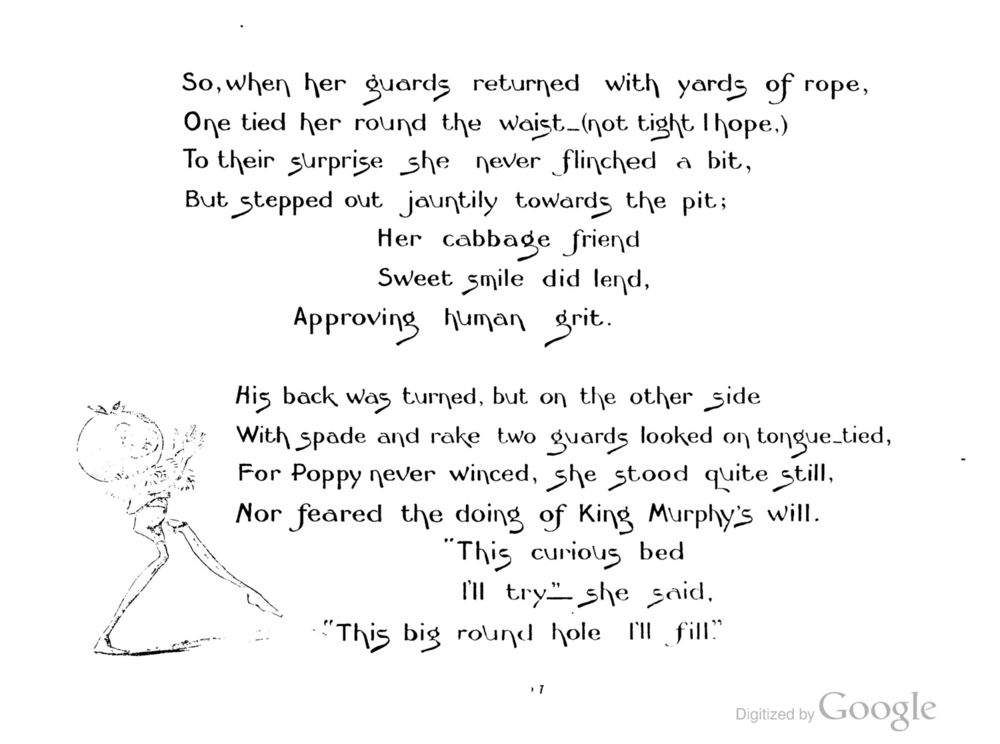 So, when her guards returned with yards of rope,
One tied her round the waist—(not tight I hope,)
To their surprise she never flinched a bit,
But stepped out jauntily towards the pit;
Her cabbage friend
Sweet smile did lend,
Approving human grit.
His back was turned, but on the other side
With spade and rake two guards looked on tongue-tied,
For Poppy never winced, she stood quite still,
Nor feared the doing of King Murphy's will.
"This curious bed
I'll try"— she said,
"This big round hole I'll fill."
Digitized by Google